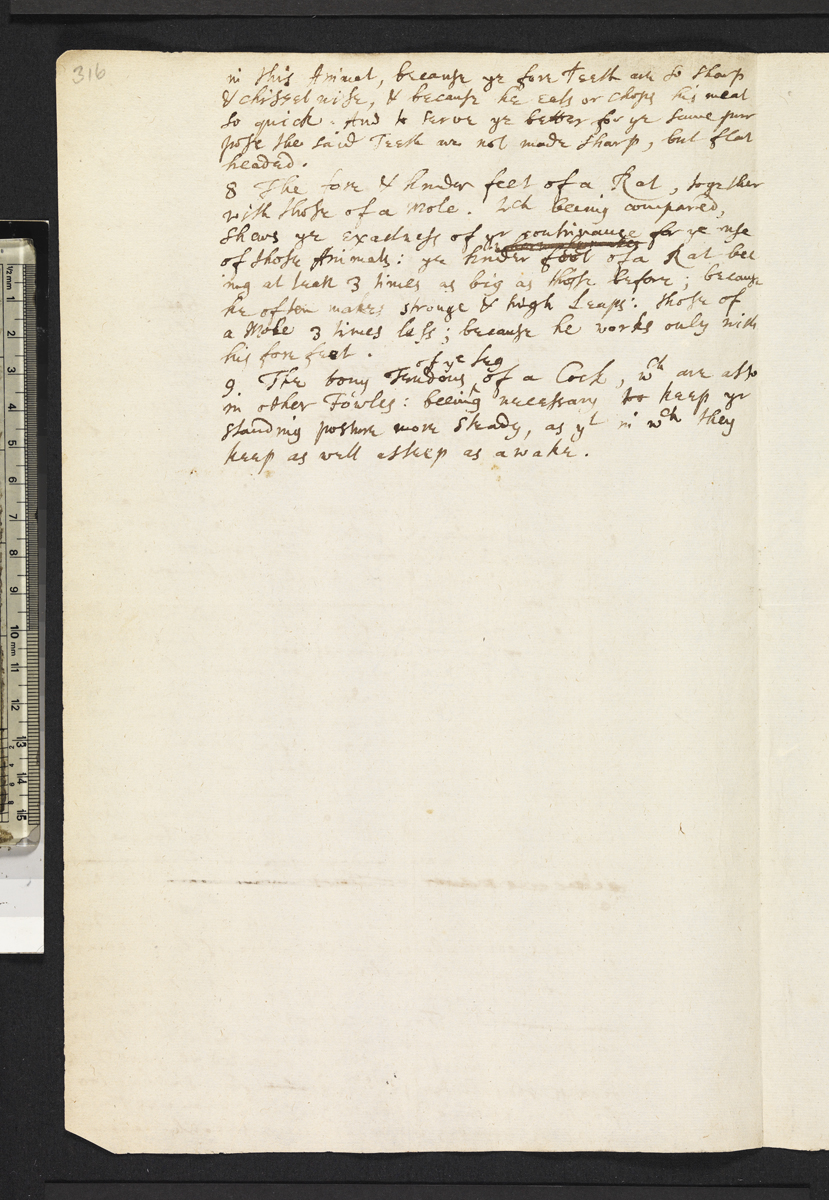 316
in this Animal, because ye fore Teeth are so sharp
& chissel wise, & because he eats or chops his meat
so quick. And to serve ye better for ye same pur
pose the said Teeth are not made sharp, but flat
headed.
8 The fore & hinder feet of a Rat, together
with those of a Mole. Wch beeing compared,
shews ye exactness of yr contrivance for ye use
of those Animals: ye hinder foot of a Rat bee
ing at least 3 times as big as those before; because
he often makes stronge & high Leaps: those of
a Mole 3 times less; because he works only with
his fore feet.
of ye leg
9. The bony Tendons of a Cock, wch are also
in other Fowles: beeing necessary to keep yr
standing posture more steady, as yt in wch they
keep as well asleep as awake.
1/2 mm 1
2
3
4
5
6
7
8
9
10 mm 11
12
13
14
15